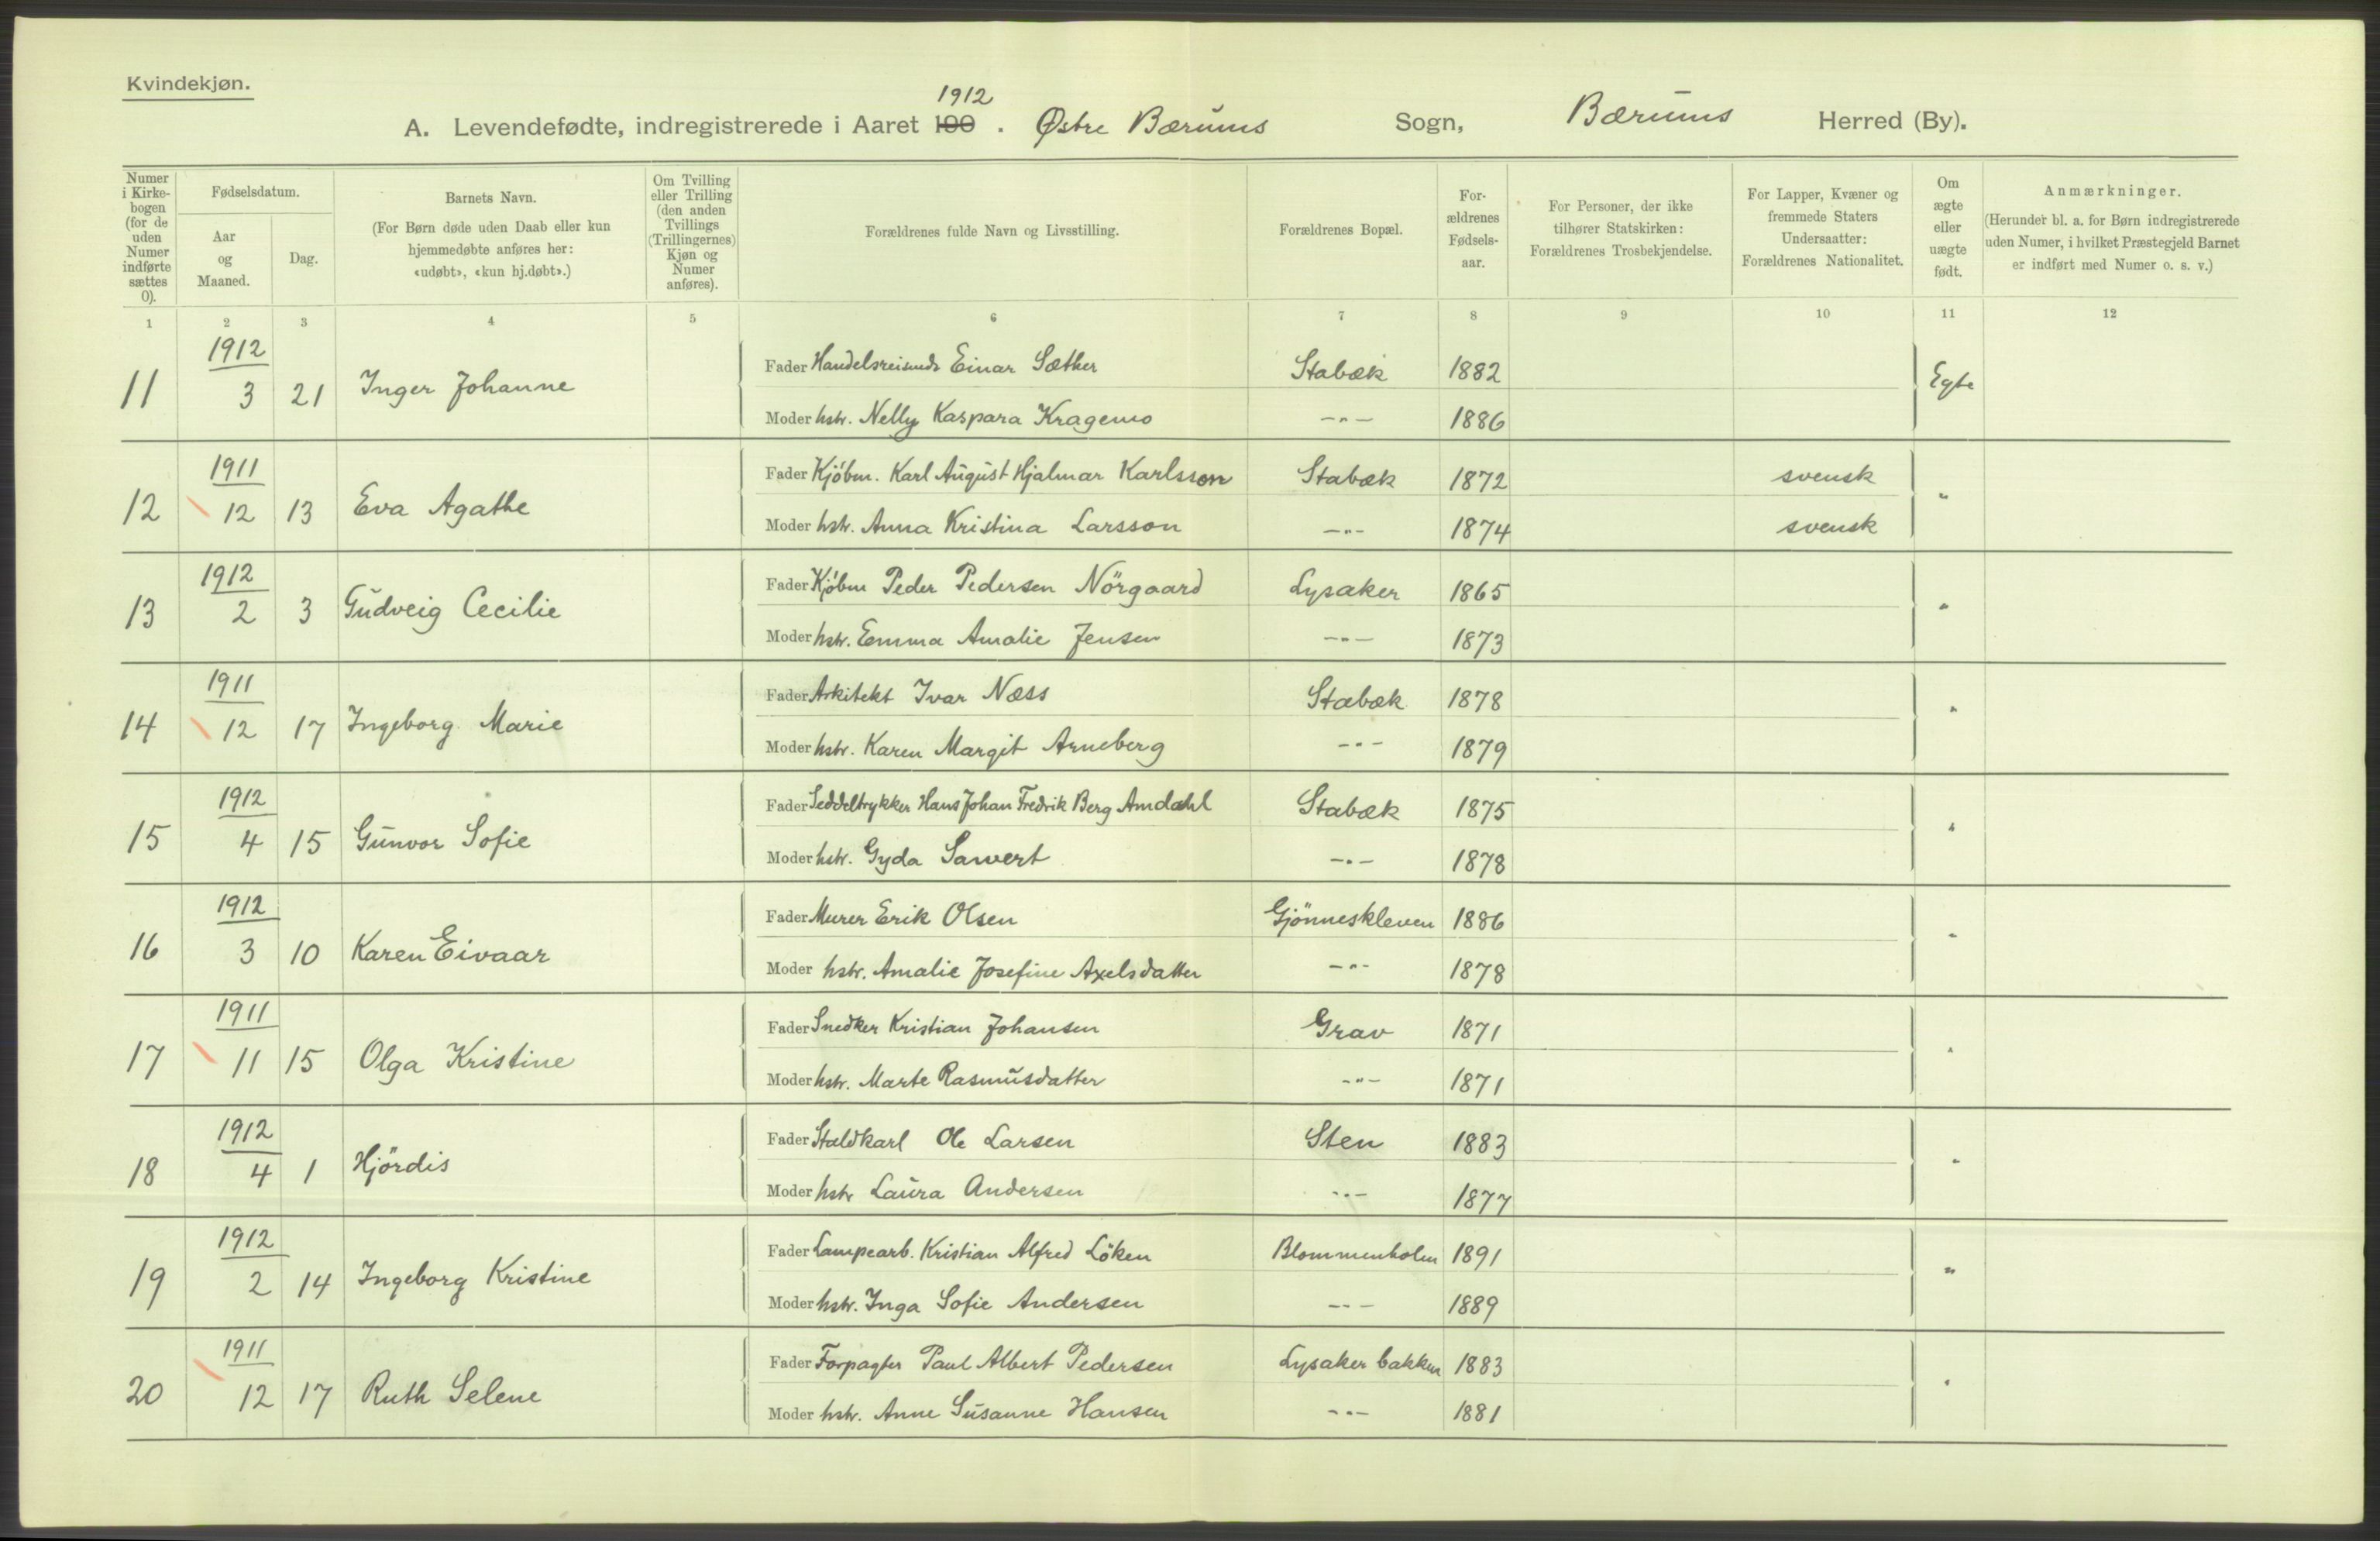 Kvindekjøn.
A. Levendefødte, indregistrerede i Aaret 190 1912 . Østre Bærums Sogn, Bærums Herred (By).
Numer i Kirkebogen (for de uden Numer indførte sættes 0).
Fødselsdatum.
Aar og Maaned.
Dag.
Barnets Navn.
(For Børn døde uden Daab eller kun hjemmedøbte anføres her: «udøbt», «kun hj.døbt».)
Om Tvilling eller Trilling (den anden Tvillings (Trillingernes) Kjøn og Numer anføres).
Forældrenes fulde Navn og Livsstilling.
Forældrenes Bopæl.
Forældrenes Fødselsaar.
For Personer, der ikke tilhører Statskirken: Forældrenes Trosbekjendelse.
For Lapper, Kvæner og fremmede Staters Undersaatter: Forældrenes Nationalitet.
Om ægte eller uægte født.
Anmærkninger.
(Herunder bl. a. for Børn indregistrerede uden Numer, i hvilket Præstegjeld Barnet er indført med Numer o. s. v.)
1 2 3 4 5 6 7 8 9 10 11 12
1912
11 3 21 Inger Johanne Fader Handelsreisende Einar Sæther Stabæk 1882 Egte
Moder hstr. Nelly Kaspara Kragemo -"- 1886
1911
12 12 13 Eva Agathe Fader Kjøbm. Karl August Hjalmar Karlsson Stabæk 1872 svensk "
Moder hstr. Anna Kristina Larsson -"- 1874 svensk
1912
13 2 3 Gudveig Cecilie Fader Kjøbm Peder Pedersen Nörgaard Lysaker 1865 "
Moder hstr. Emma Amalie Jensen -"- 1873
1911
14 12 17 Ingeborg Marie Fader Arkitekt Ivar Næss Stabæk 1878 "
Moder hstr. Karen Margit Arneberg -"- 1879
1912
15 4 15 Gunvor Sofie Fader Seddeltrykker Hans Johan Fredrik Berg Amdahl Stabæk 1875 "
Moder hstr. Gyda -"- 1878
1912
16 3 10 Karen Eivaar Fader Murer Erik Olsen Gjönneskleven 1886 "
Moder hstr. Amalie Josefine Axelsdatter -"- 1878
1911
17 11 15 Olga Kristine Fader Snedker Kristian Johansen Grav 1871 "
Moder hstr. Marte Rasmusdatter -"- 1871
1912
18 4 1 Hjördis Fader Staldkarl Ole Larsen Sten 1883 "
Moder hstr Laura Andersen -"- 1877
1912
19 2 14 Ingeborg Kristine Fader Lampearb. Kristian Alfred Löken Blommenholm 1891 "
Moder hstr. Inga Sofie Andersen -"- 1889
1911
20 12 17 Ruth Selene Fader Forpagter Paul Albert Pedersen Lysaker bakken 1883 "
Moder hstr. Anne Susanne Hansen -"- 1881